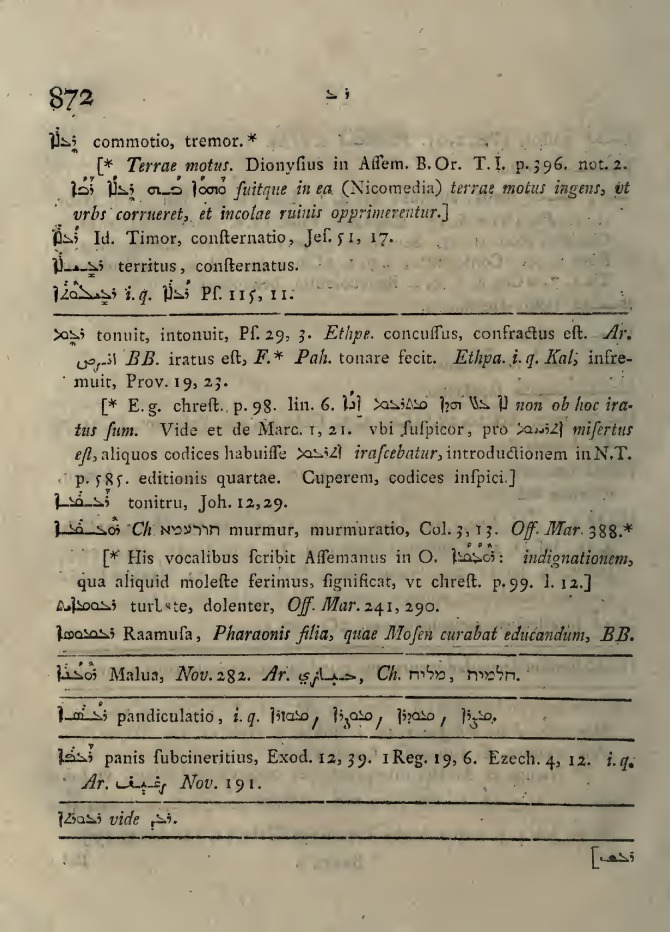 872 ܪܥ
ܪܥܠܐ commotio, tremor.*
[* Terrae motus. Dionyſius in Aſſem. B. Or. T. I. p. 396. not. 2.
ܘܗܘܐ ܒܗ ܪܥܠܐ ܪܒܐ fuitque in ea (Nicomedia) terrae motus ingens, vt
vrbs corrueret, et incolae ruinis opprimerentur.]
ܪܥܠܐ Id. Timor, conſternatio, Jeſ. 51, 17.
ܪܥܝܠܐ territus, conſternatus.
ܪܥܝܠܘܬܐ i. q. ܪܥܠܐ Pſ. 115, 11.
ܪܥܡ tonuit, intonuit, Pſ. 29, 3. Ethpe. concuſſus, confractus eſt. Ar.
BB. iratus eſt, F.* Pah. tonare fecit. Ethpa. i. q. Kal; infre-
muit, Prov. 19, 23.
[* E. g. chreſt. p. 98. lin. 6. ܠܐ ܥܠ ܗܕܐ ܡܬܪܥܡ ܐܢܐ non ob hoc ira-
tus ſum. Vide et de Marc. 1, 21. vbi ſuſpicor, pro ܐܬܪܚܡ miſertus
eſt, aliquos codices habuiſſe ܐܬܪܥܡ iraſcebatur, introductionem in N. T.
p. 585. editionis quartae. Cuperem, codices inſpici.]
ܪܥܡܐ tonitru, Joh. 12, 29.
ܪܘܥܡܐ Ch תורעמיא murmur, murmuratio, Col. 3, 13. Off. Mar. 388.*
[* His vocalibus ſcribit Aſſemanus in O. ܪܘܥܡܐ: indignationem,
qua aliquid moleſte ferimus, ſignificat, vt chreſt. p. 99. l. 12.]
turbate, dolenter, Off. Mar. 241, 290.
ܪܥܡܘܣܐ Raamuſa, Pharaonis filia, quae Moſen curabat educandum, BB.
Malua, Nov. 282. Ar. خبازي, Ch. מליח, חלמית.
pandiculatio, i. q.
ܪܥܦܐ panis ſubcineritius, Exod. 12, 39. 1 Reg. 19, 6. Ezech. 4, 12. i. q.
Ar. رغيف Nov. 191.
vide
[ܪܥܦ